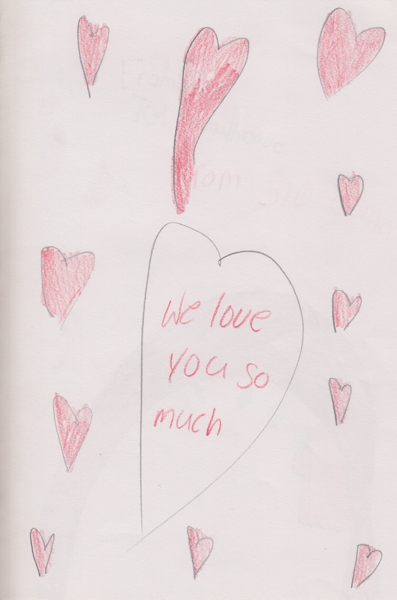 We love
you so
much